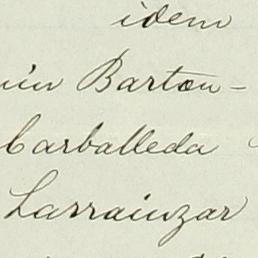 idem
Barton-
Carballeda
Larrainzar